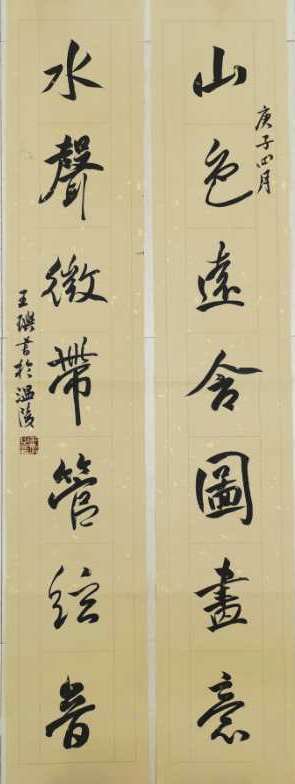 山色遠含圖畫意
庚子四月
水聲微帶管絃音
王璵書於溫陵